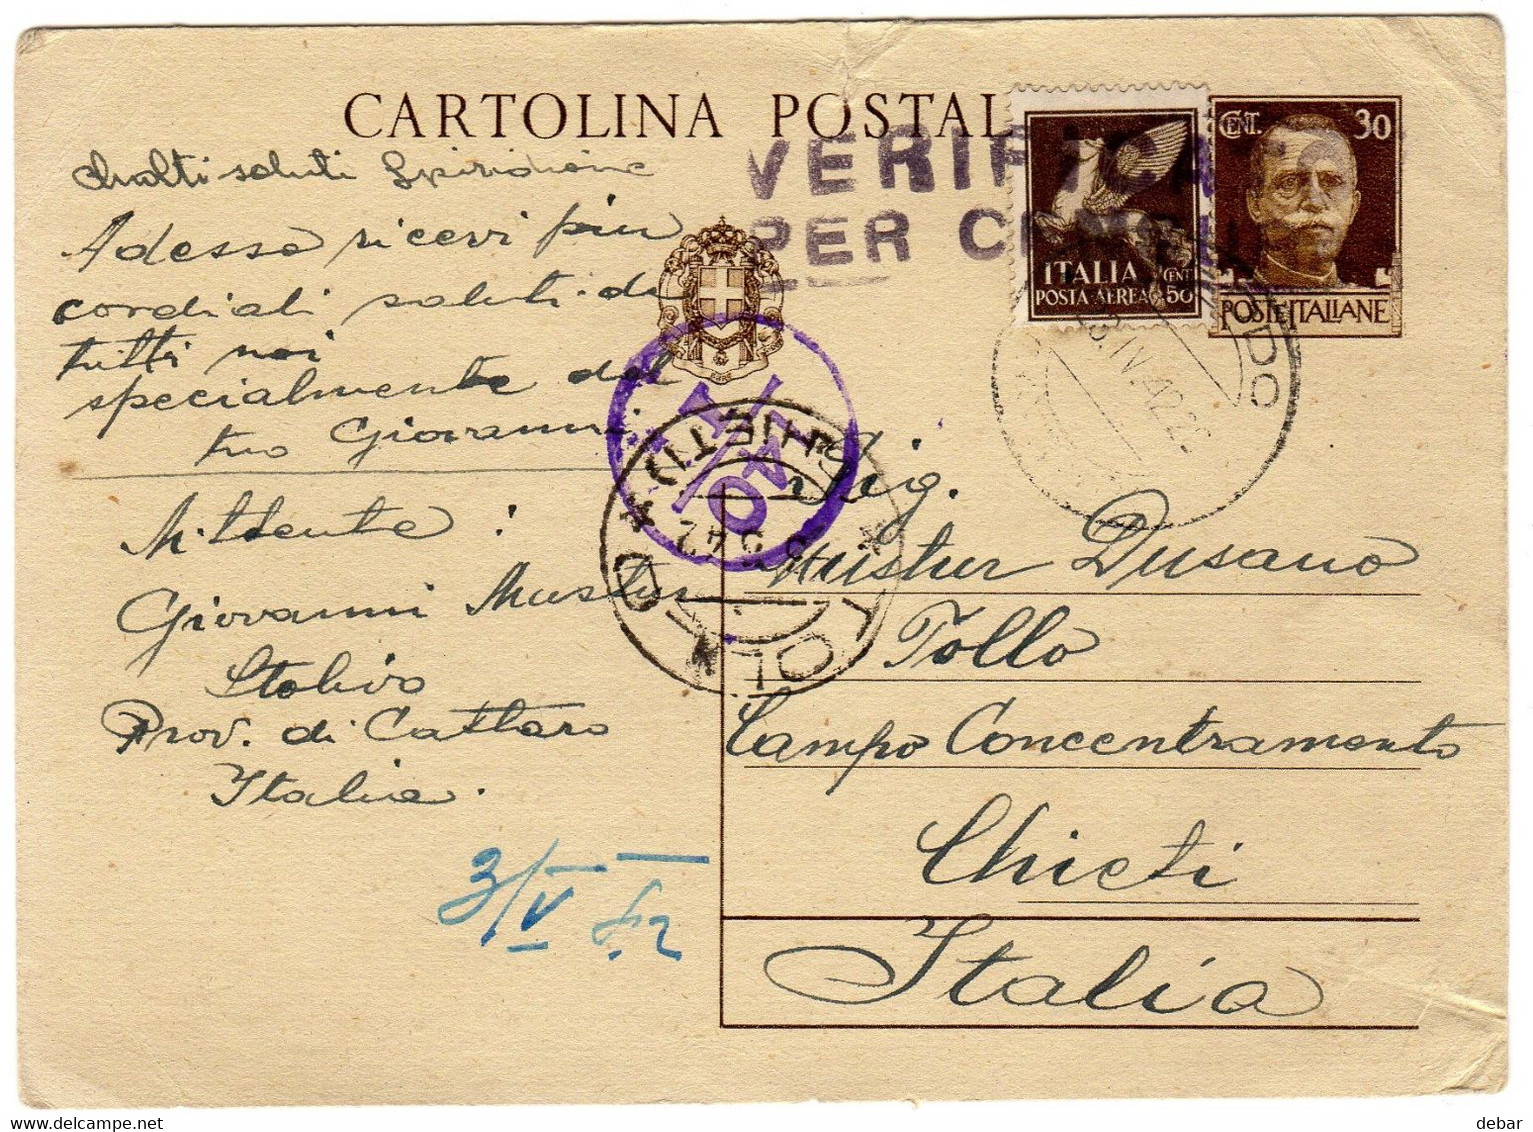 CARTOLINA POSTALE
VERIFICATO
PER CENSURA
ITALIA
POSTA AEREA
CENT 50
CENT. 30
POSTE ITALIANE
Molti saluti Spiridione
Adesso ricevi piu
cordiali saluti di
tutti noi
specialmente del
tuo Giovanni.
Mittente :
Giovanni Mustur
Stolivo
Prov. di Cattaro
Italia.
3/V 42
TOLLO
(CHIETI)
3 5 42
IV.42
Sig.
Mustur Dusano
Tollo
Campo Concentramento
Chieti
Italia
debar